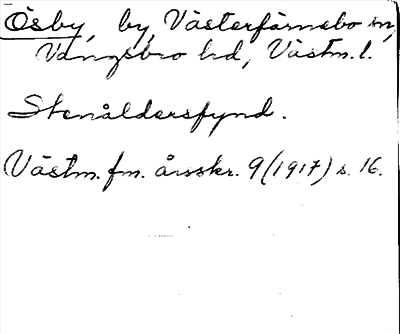 Ösby, by, Västerfärnebo sn,
Vangsbro hd, Västm. l.
Stenåldersfynd.
Västm. fm. årsskr. 9 (1917) s. 16.